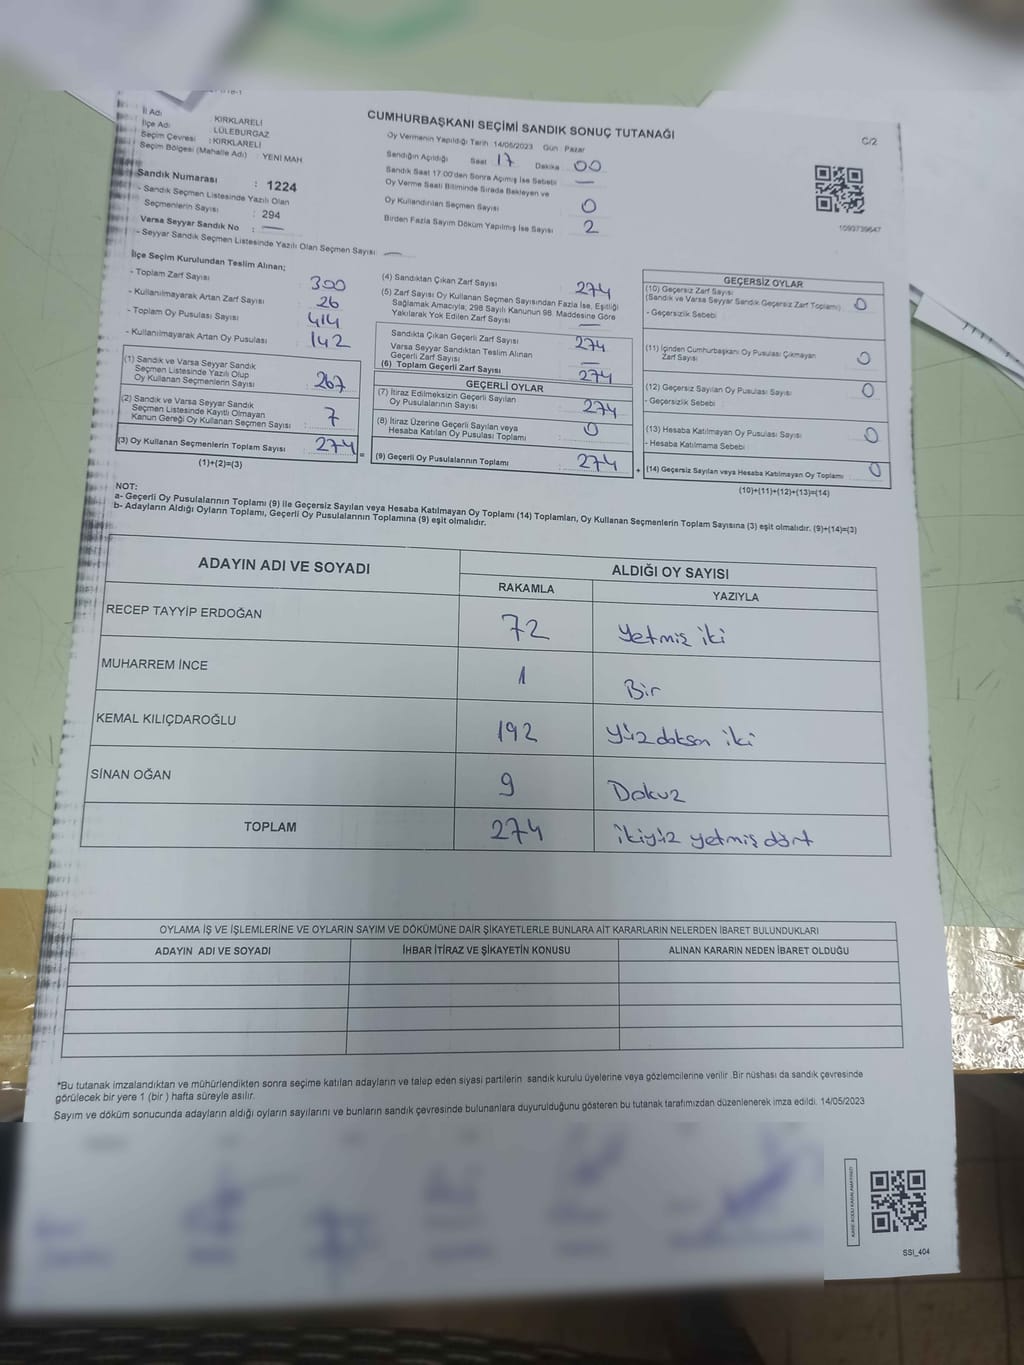 CUMHURBAŞKANI SEÇİMİ SANDIK SONUÇ TUTANAĞI
C/2
İl Adı : KIRKLARELİ
İlçe Adı : LÜLEBURGAZ
Seçim Çevresi : KIRKLARELİ
Seçim Bölgesi (Mahalle Adı) : YENİ MAH
Sandık Numarası : 1224
- Sandık Seçmen Listesinde Yazılı Olan
Seçmenlerin Sayısı : 294
Varsa Seyyar Sandık No : —
- Seyyar Sandık Seçmen Listesinde Yazılı Olan Seçmen Sayısı : —
Oy Vermenin Yapıldığı Tarih 14/05/2023 Gün : Pazar
Sandığın Açıldığı Saat 17 Dakika 00
Sandık Saat 17:00'den Sonra Açımış İse Sebebi —
Oy Verme Saati Bitiminde Sırada Bekleyen ve
Oy Kullandırılan Seçmen Sayısı 0
Birden Fazla Sayım Döküm Yapılmış İse Sayısı 2
1093739647
İlçe Seçim Kurulundan Teslim Alınan;
- Toplam Zarf Sayısı : 300
- Kullanılmayarak Artan Zarf Sayısı : 26
- Toplam Oy Pusulası Sayısı : 414
- Kullanılmayarak Artan Oy Pusulası : 142
(1) Sandık ve Varsa Seyyar Sandık
Seçmen Listesinde Yazılı Olup
Oy Kullanan Seçmenlerin Sayısı : 267
(2) Sandık ve Varsa Seyyar Sandık
Seçmen Listesinde Kayıtlı Olmayan
Kanun Gereği Oy Kullanan Seçmen Sayısı : 7
(3) Oy Kullanan Seçmenlerin Toplam Sayısı : 274 =
(1)+(2)=(3)
(4) Sandıktan Çıkan Zarf Sayısı : 274
(5) Zarf Sayısı Oy Kullanan Seçmen Sayısından Fazla İse, Eşitliği
Sağlamak Amacıyla, 298 Sayılı Kanunun 98. Maddesine Göre
Yakılarak Yok Edilen Zarf Sayısı : —
Sandıkta Çıkan Geçerli Zarf Sayısı : 274
Varsa Seyyar Sandıktan Teslim Alınan
Geçerli Zarf Sayısı : —
(6) Toplam Geçerli Zarf Sayısı : 274
GEÇERLİ OYLAR
(7) İtiraz Edilmeksizin Geçerli Sayılan
Oy Pusulalarının Sayısı : 274
(8) İtiraz Üzerine Geçerli Sayılan veya
Hesaba Katılan Oy Pusulası Toplamı : 0
(9) Geçerli Oy Pusulalarının Toplamı : 274 +
GEÇERSİZ OYLAR
(10) Geçersiz Zarf Sayısı
(Sandık ve Varsa Seyyar Sandık Geçersiz Zarf Toplamı) : 0
- Geçersizlik Sebebi :
(11) İçinden Cumhurbaşkanı Oy Pusulası Çıkmayan
Zarf Sayısı : 0
(12) Geçersiz Sayılan Oy Pusulası Sayısı : 0
- Geçersizlik Sebebi :
(13) Hesaba Katılmayan Oy Pusulası Sayısı : 0
- Hesaba Katılmama Sebebi :
(14) Geçersiz Sayılan veya Hesaba Katılmayan Oy Toplamı : 0
(10)+(11)+(12)+(13)=(14)
NOT:
a- Geçerli Oy Pusulalarının Toplamı (9) ile Geçersiz Sayılan veya Hesaba Katılmayan Oy Toplamı (14) Toplamları, Oy Kullanan Seçmenlerin Toplam Sayısına (3) eşit olmalıdır. (9)+(14)=(3)
b- Adayların Aldığı Oyların Toplamı, Geçerli Oy Pusulalarının Toplamına (9) eşit olmalıdır.
ADAYIN ADI VE SOYADI
ALDIĞI OY SAYISI
RAKAMLA YAZIYLA
RECEP TAYYİP ERDOĞAN 72 Yetmiş iki
MUHARREM İNCE 1 Bir
KEMAL KILIÇDAROĞLU 192 Yüzdoksan iki
SİNAN OĞAN 9 Dokuz
TOPLAM 274 ikiyüz yetmiş dört
OYLAMA İŞ VE İŞLEMLERİNE VE OYLARIN SAYIM VE DÖKÜMÜNE DAİR ŞİKAYETLERLE BUNLARA AİT KARARLARIN NELERDEN İBARET BULUNDUKLARI
ADAYIN ADI VE SOYADI İHBAR İTİRAZ VE ŞİKAYETİN KONUSU ALINAN KARARIN NEDEN İBARET OLDUĞU
*Bu tutanak imzalandıktan ve mühürlendikten sonra seçime katılan adayların ve talep eden siyasi partilerin sandık kurulu üyelerine veya gözlemcilerine verilir. Bir nüshası da sandık çevresinde
görülecek bir yere 1 (bir ) hafta süreyle asılır.
Sayım ve döküm sonucunda adayların aldığı oyların sayılarını ve bunların sandık çevresinde bulunanlara duyurulduğunu gösteren bu tutanak tarafımızdan düzenlenerek imza edildi. 14/05/2023
SSI_404